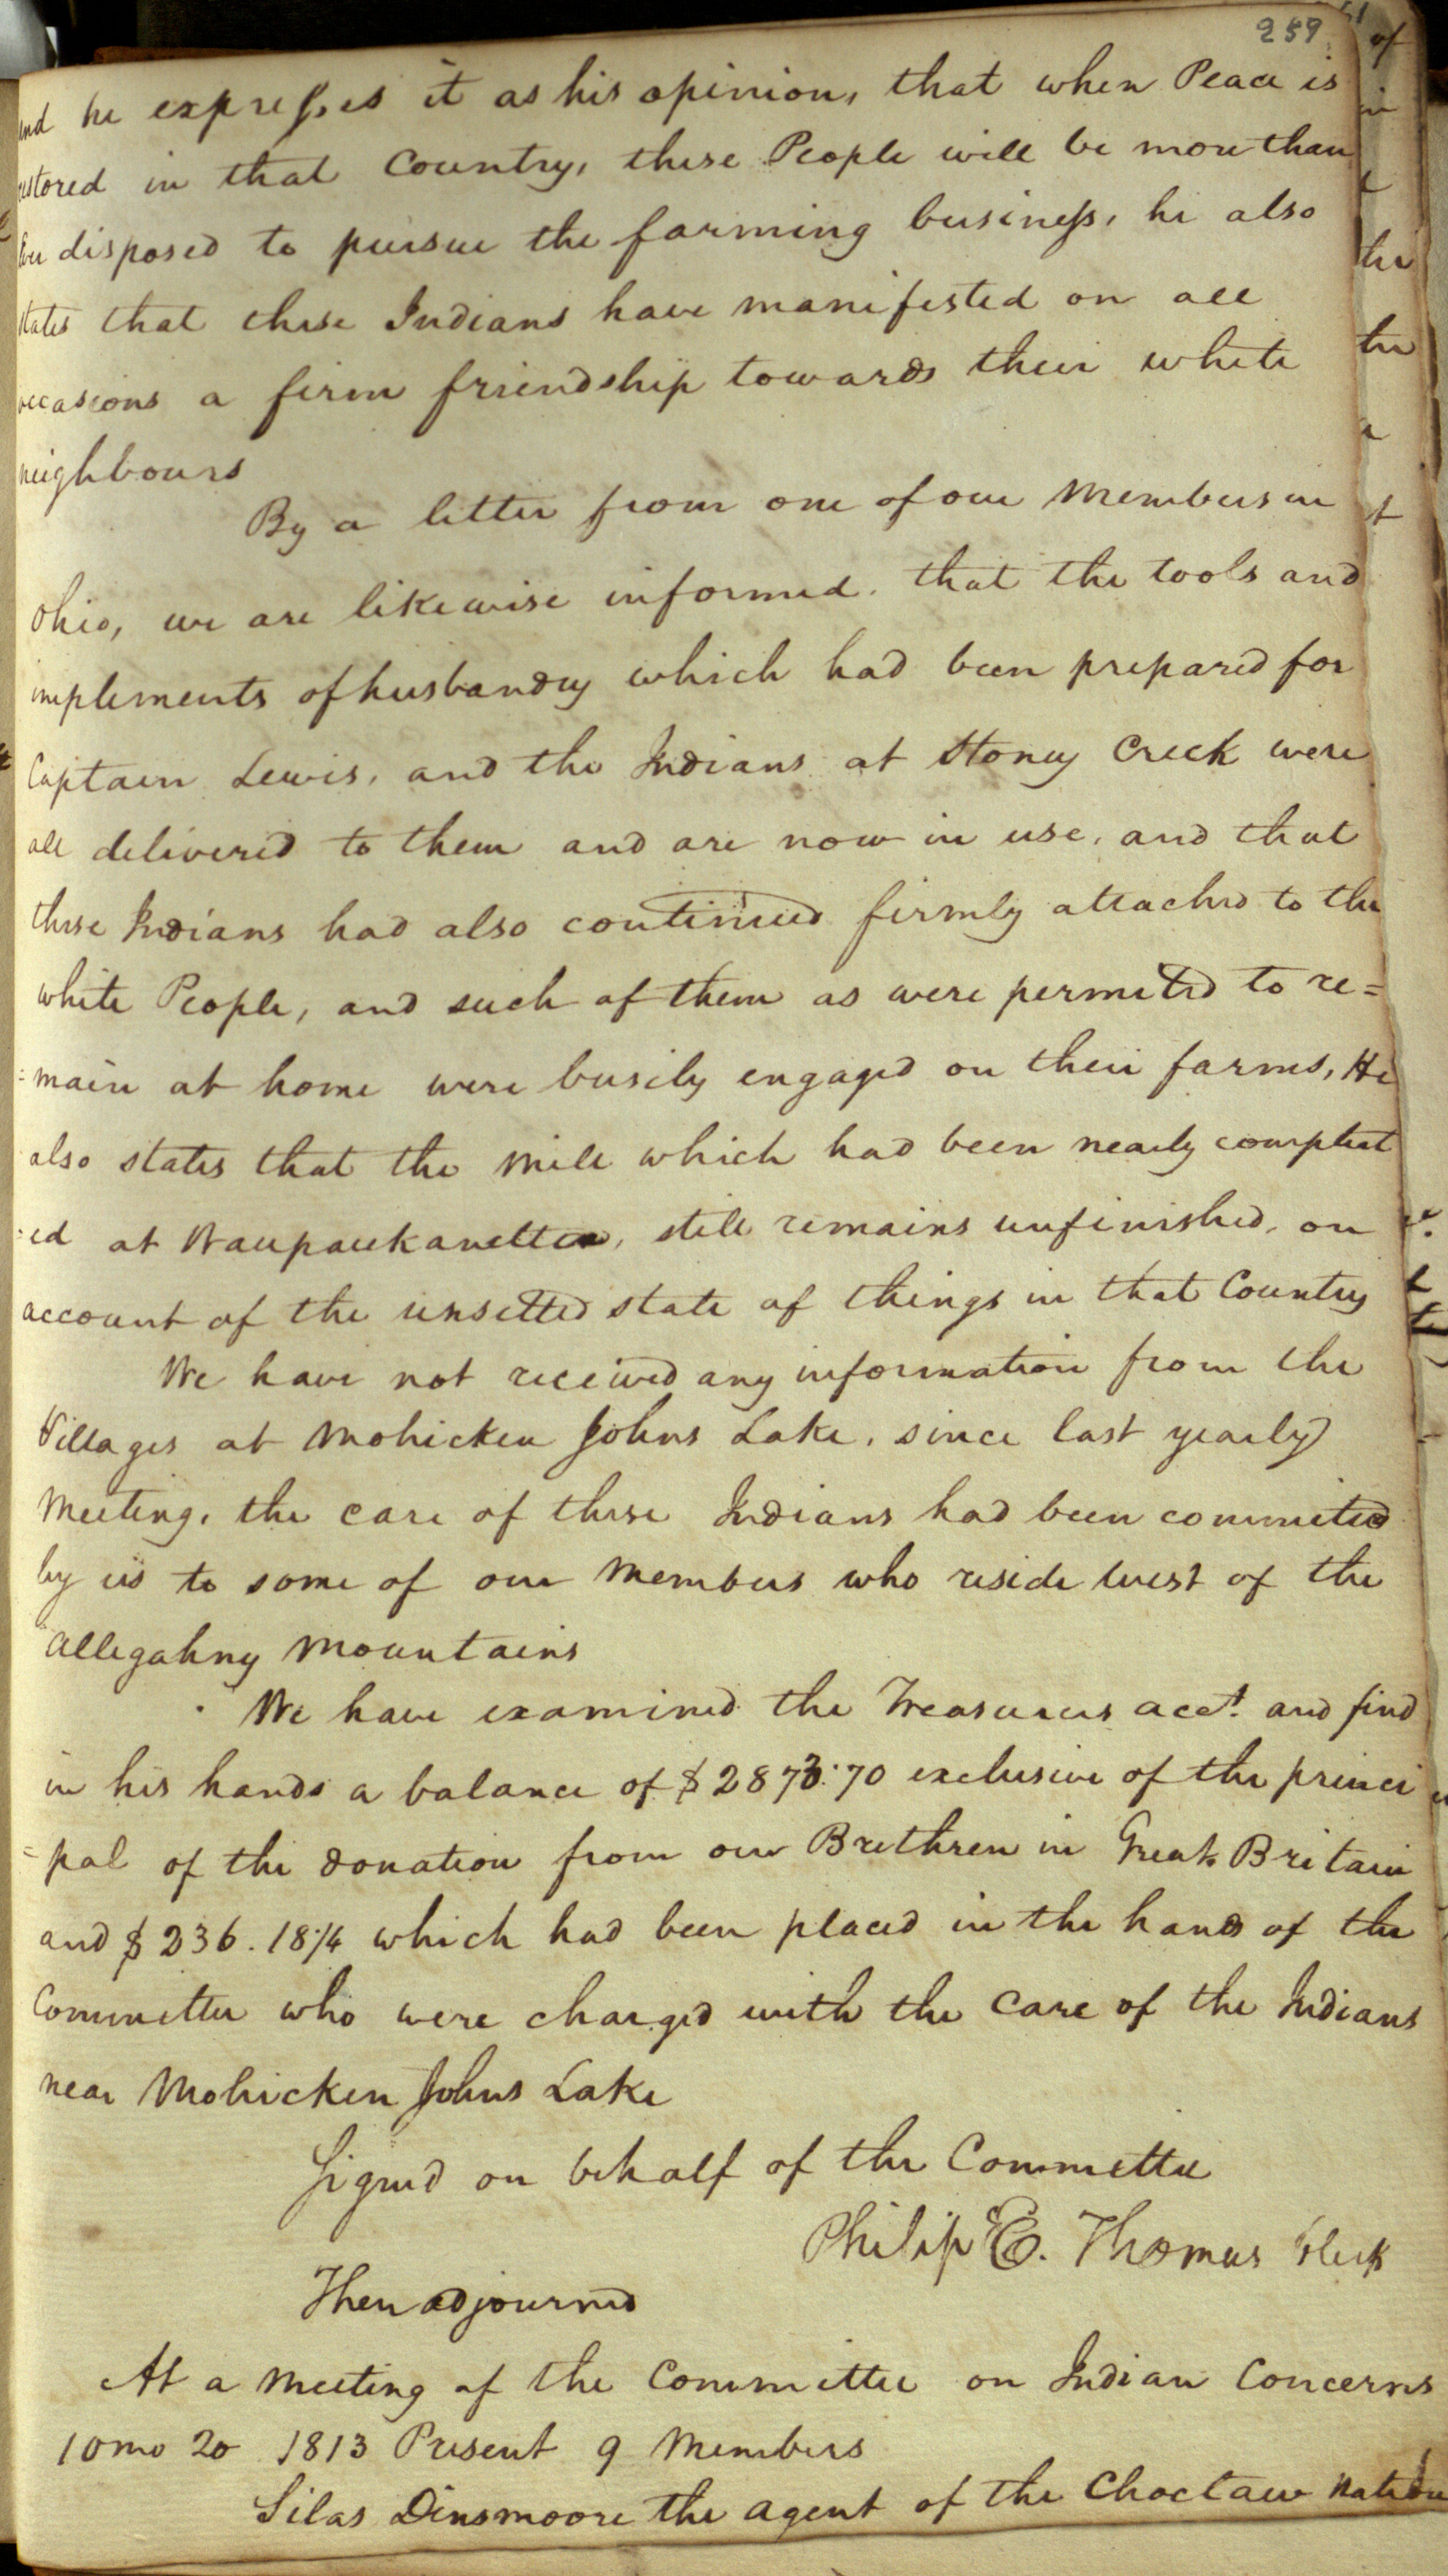 259
and he expresses it as his opinion, that when Peace is
restored in that Country, these People will be more than
Ever disposed to pursue the farming business, he also
states that these Indians have manifested on all
occasions a firm friendship towards their white
neighbours
By a letter from one of our Members in
Ohio, we are likewise informed. that the tools and
implements of husbandry which had been prepared for
Captain Lewis, and the Indians at Stoney Creek were
all delivered to them and are now in use, and that
these Indians had also continued firmly attached to the
white People, and such of them as were permited to re=
=main at home were busily engaged on their farms, He
also states that the Mill which had been nearly compleat
=ed at Waupaukanetta, still remains unfinished, on
account of the unsetted state of things in that Country
We have not received any information from the
Villages at Mohicken Johns Lake, since last yearly
Meeting, the care of these Indians had been commited
by us to some of our Members who reside west of the
Allegahny Mountains
We have examined the Treasurers acct. and find
in his hands a balance of $2873.70 exclusive of the princi
=pal of the donation from our Brethren in Great Britain
and $236.18¼ which had been placed in the hands of the
Committee who were charged with the care of the Indians
near Mohicken Johns Lake
Signed on behalf of the Committee
Philip E. Thomas Clerk
Then adjourned
At a Meeting of the Committee on Indian Concerns
10mo 20 1813 Present 9 Members
Silas Dinsmoore the agent of the Choctaw Nation